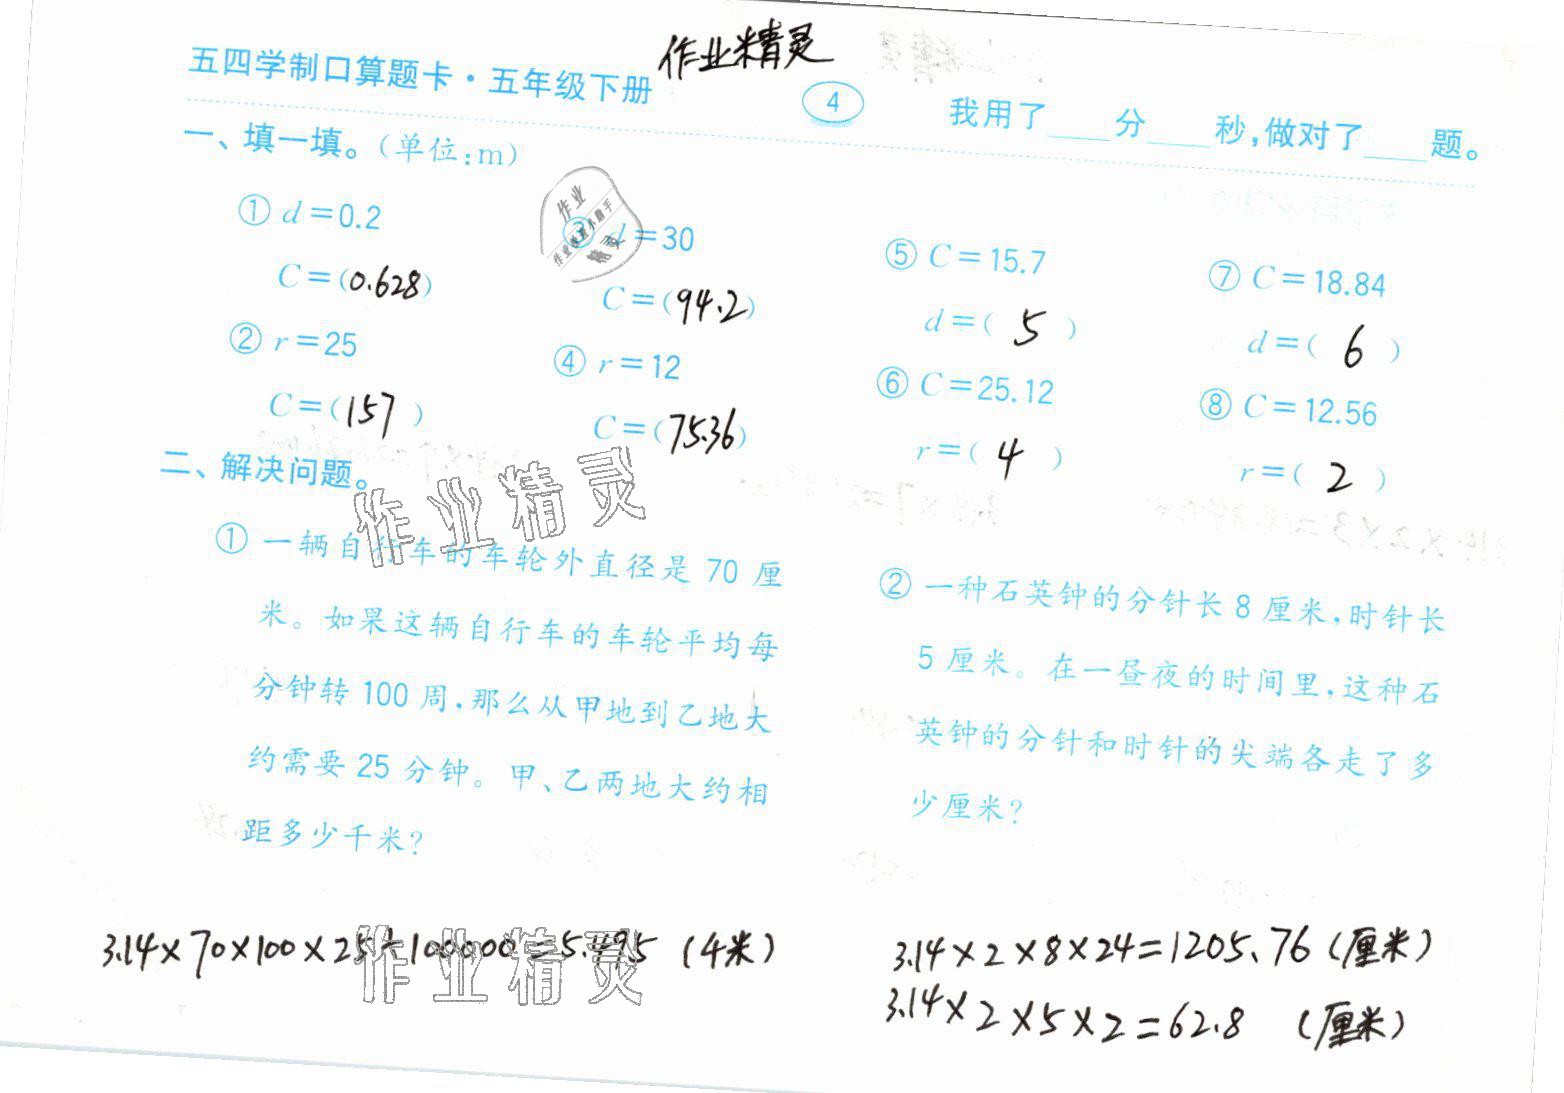 五四学制口算题卡·五年级下册
作业精灵
4
我用了____分____秒,做对了____题。
一、填一填。(单位:m)
① d=0.2
C=(0.628)
② r=25
C=(157)
③ d=30
C=(94.2)
④ r=12
C=(75.36)
⑤ C=15.7
d=( 5 )
⑥ C=25.12
r=( 4 )
⑦ C=18.84
d=( 6 )
⑧ C=12.56
r=( 2 )
作业
精灵
二、解决问题。
作业精灵
① 一辆自行车的车轮外直径是 70 厘
米。如果这辆自行车的车轮平均每
分钟转 100 周,那么从甲地到乙地大
约需要 25 分钟。甲、乙两地大约相
距多少千米?
3.14×70×100×25÷100000=5.495 (千米)
作业精灵
② 一种石英钟的分针长 8 厘米,时针长
5 厘米。在一昼夜的时间里,这种石
英钟的分针和时针的尖端各走了多
少厘米?
3.14×2×8×24=1205.76(厘米)
3.14×2×5×2=62.8 (厘米)